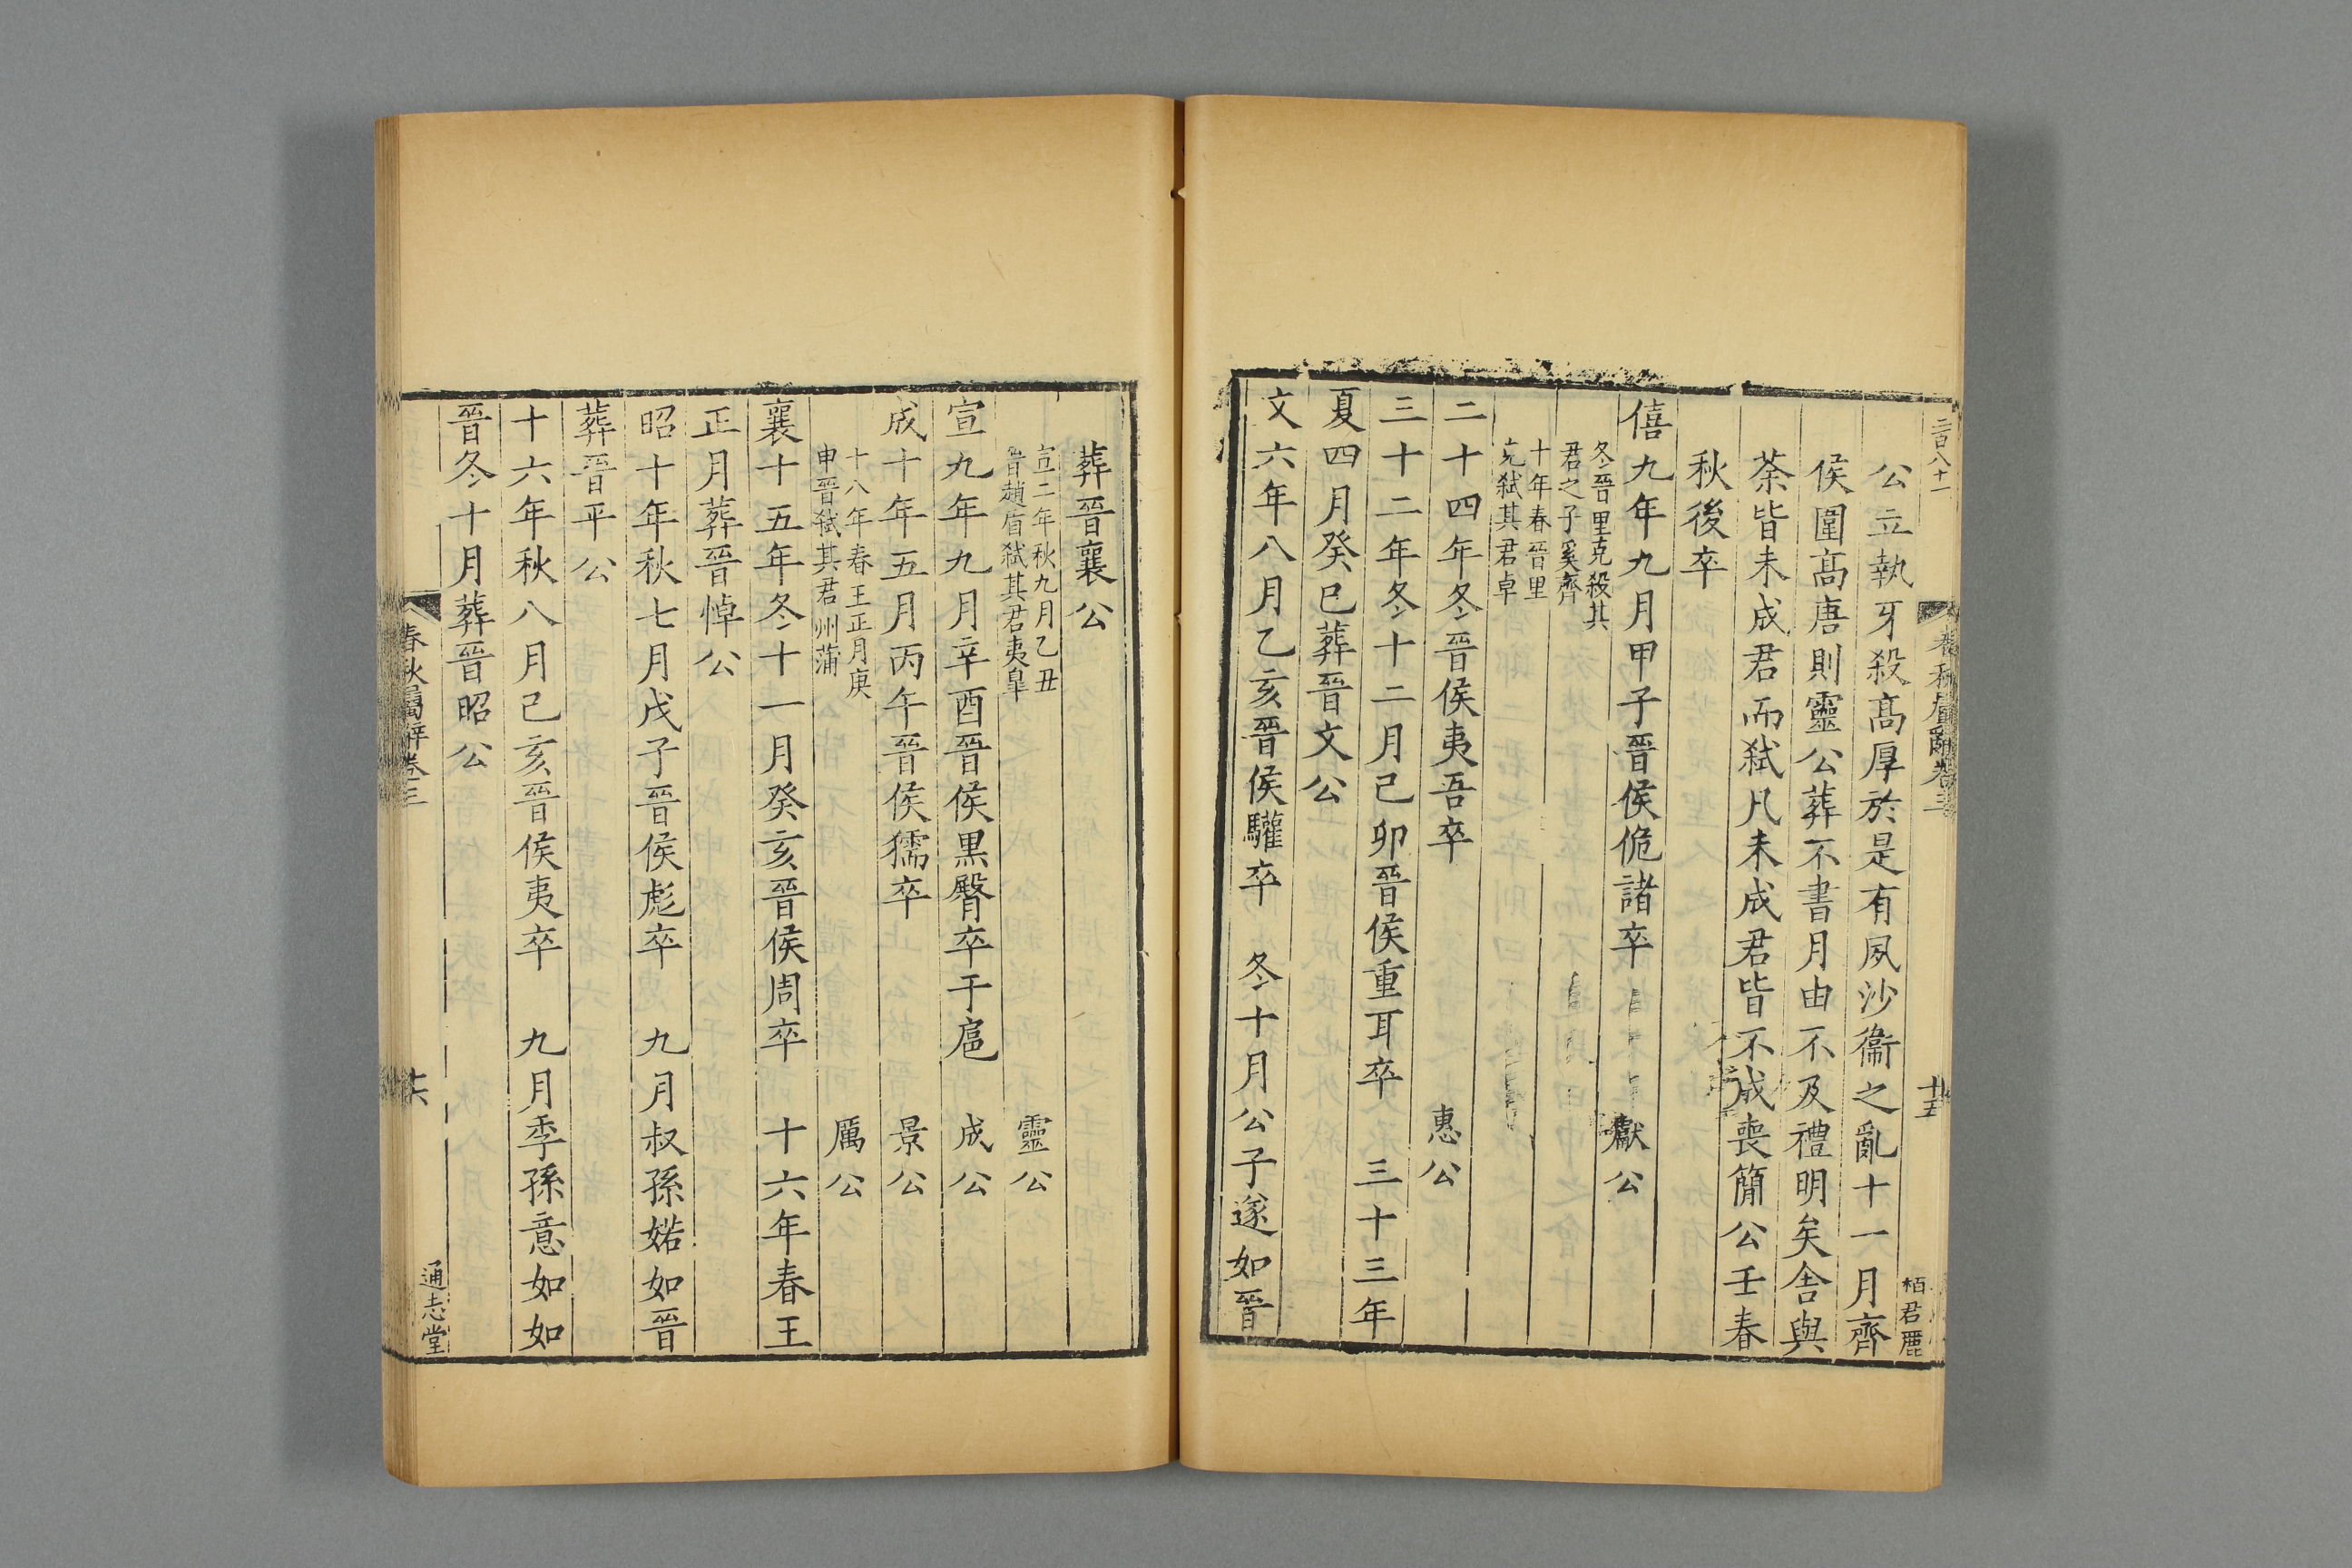 二百八十一
春秋屬辭卷三
十五
栢君鹿
公立執牙殺髙厚於是有夙沙衞之亂十一月齊
侯圍髙唐則靈公葬不書月由不及禮明矣舎與
荼皆未成君而弑凡未成君皆不成喪簡公壬春
秋後卒
僖九年九月甲子晉侯佹諸卒 獻公
冬晉里克殺其
君之子奚齊
十年春晉里
克弑其君卓
二十四年冬晉侯夷吾卒 惠公
三十二年冬十二月己卯晉侯重耳卒 三十三年
夏四月癸巳葬晉文公
文六年八月乙亥晉侯驩卒 冬十月公子遂如晉
葬晉襄公
宣二年秋九月乙丑
晉趙盾弑其君夷皐
靈公
宣九年九月辛酉晉侯黒臀卒于扈 成公
成十年五月丙午晉侯獳卒 景公
十八年春王正月庚
申晉弑其君州蒲
厲公
襄十五年冬十一月癸亥晉侯周卒 十六年春王
正月葬晉悼公
昭十年秋七月戊子晉侯彪卒 九月叔孫婼如晉
葬晉平公
十六年秋八月己亥晉侯夷卒 九月季孫意如如
晉冬十月葬晉昭公
春秋屬辭卷三
十六
通志堂